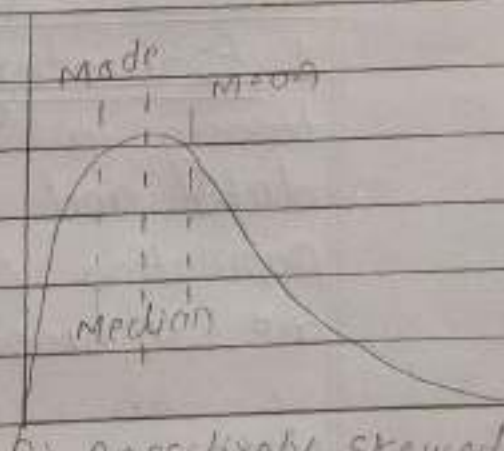 Made
Mean
Median
skewed